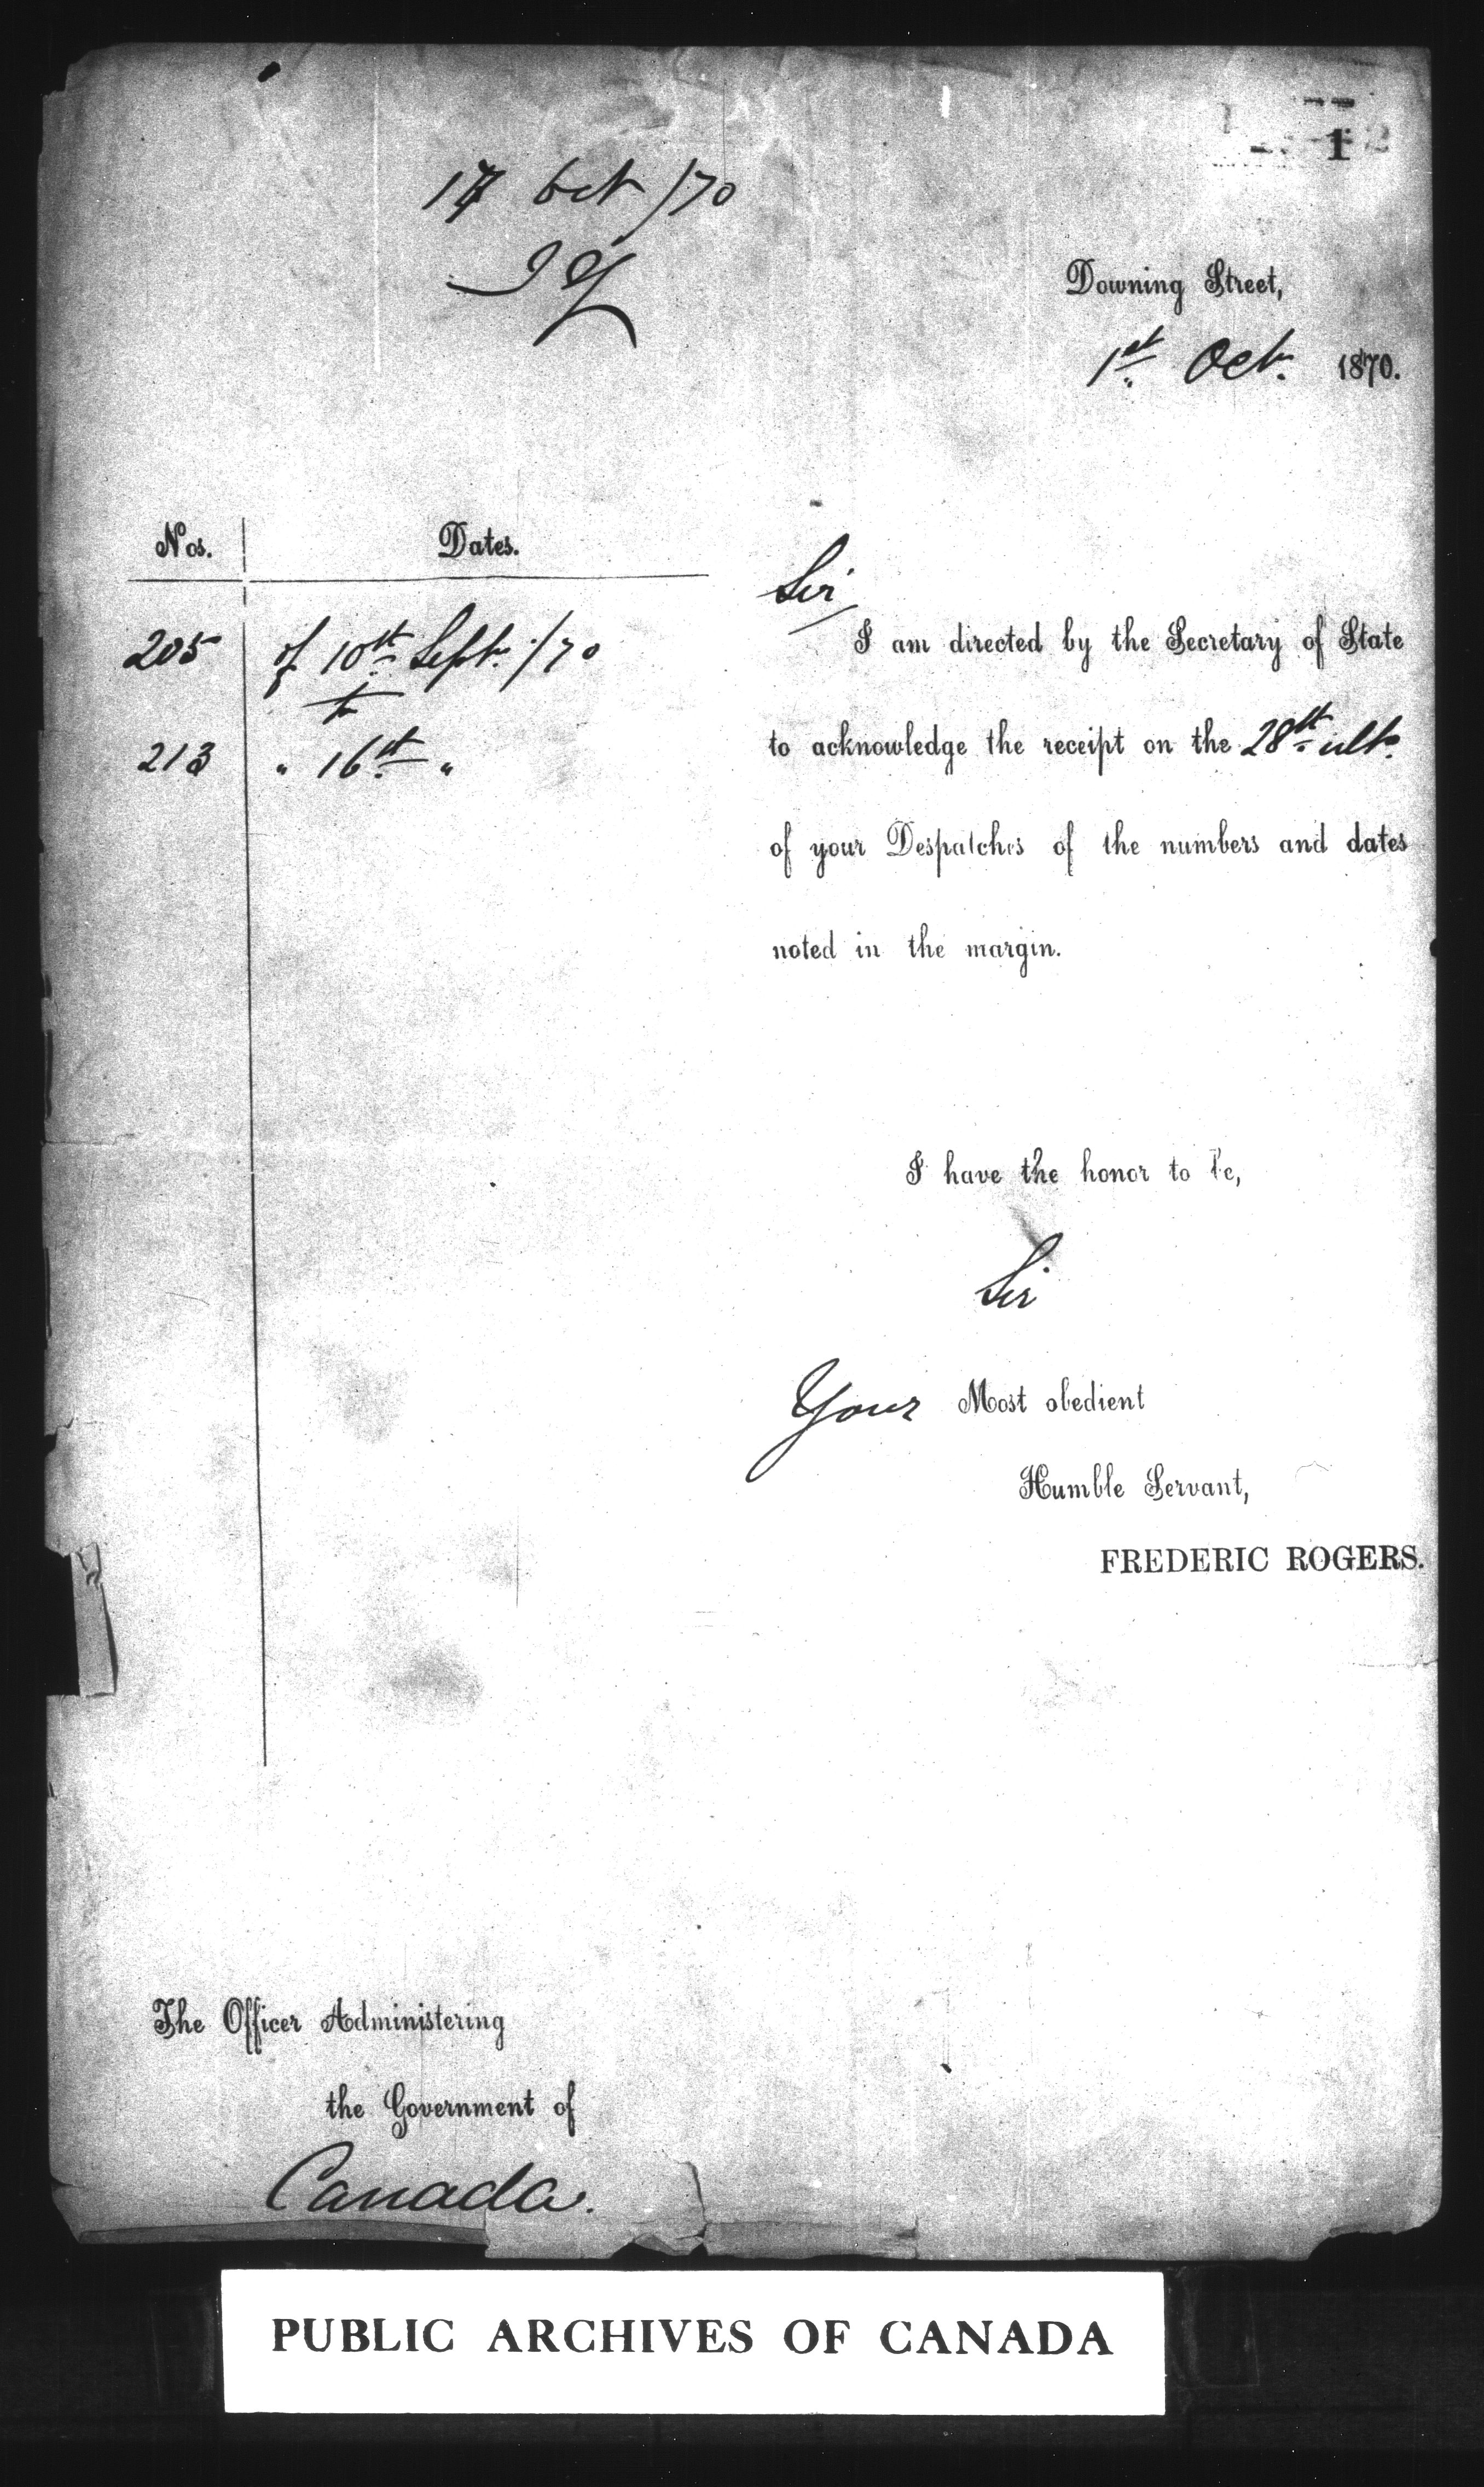 1
17 Oct /70
Downing Street,
1st Oct. 1870.
Nos. Dates.
205 of 10th Sept. /70
to
213 " 16th "
Sir
I am directed by the Secretary of State
to acknowledge the receipt on the 28th ulto.
of your Despatches of the numbers and dates
noted in the margin.
I have the honor to be,
Sir
Your Most obedient
Humble Servant,
FREDERIC ROGERS.
The Officer Administering
the Government of
Canada.
PUBLIC ARCHIVES OF CANADA